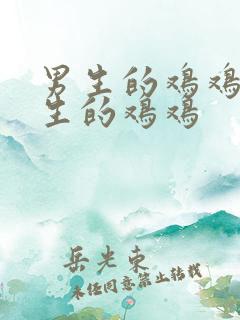 男生的鸡鸡
生的鸡鸡
岳光东
未经同意禁止转载